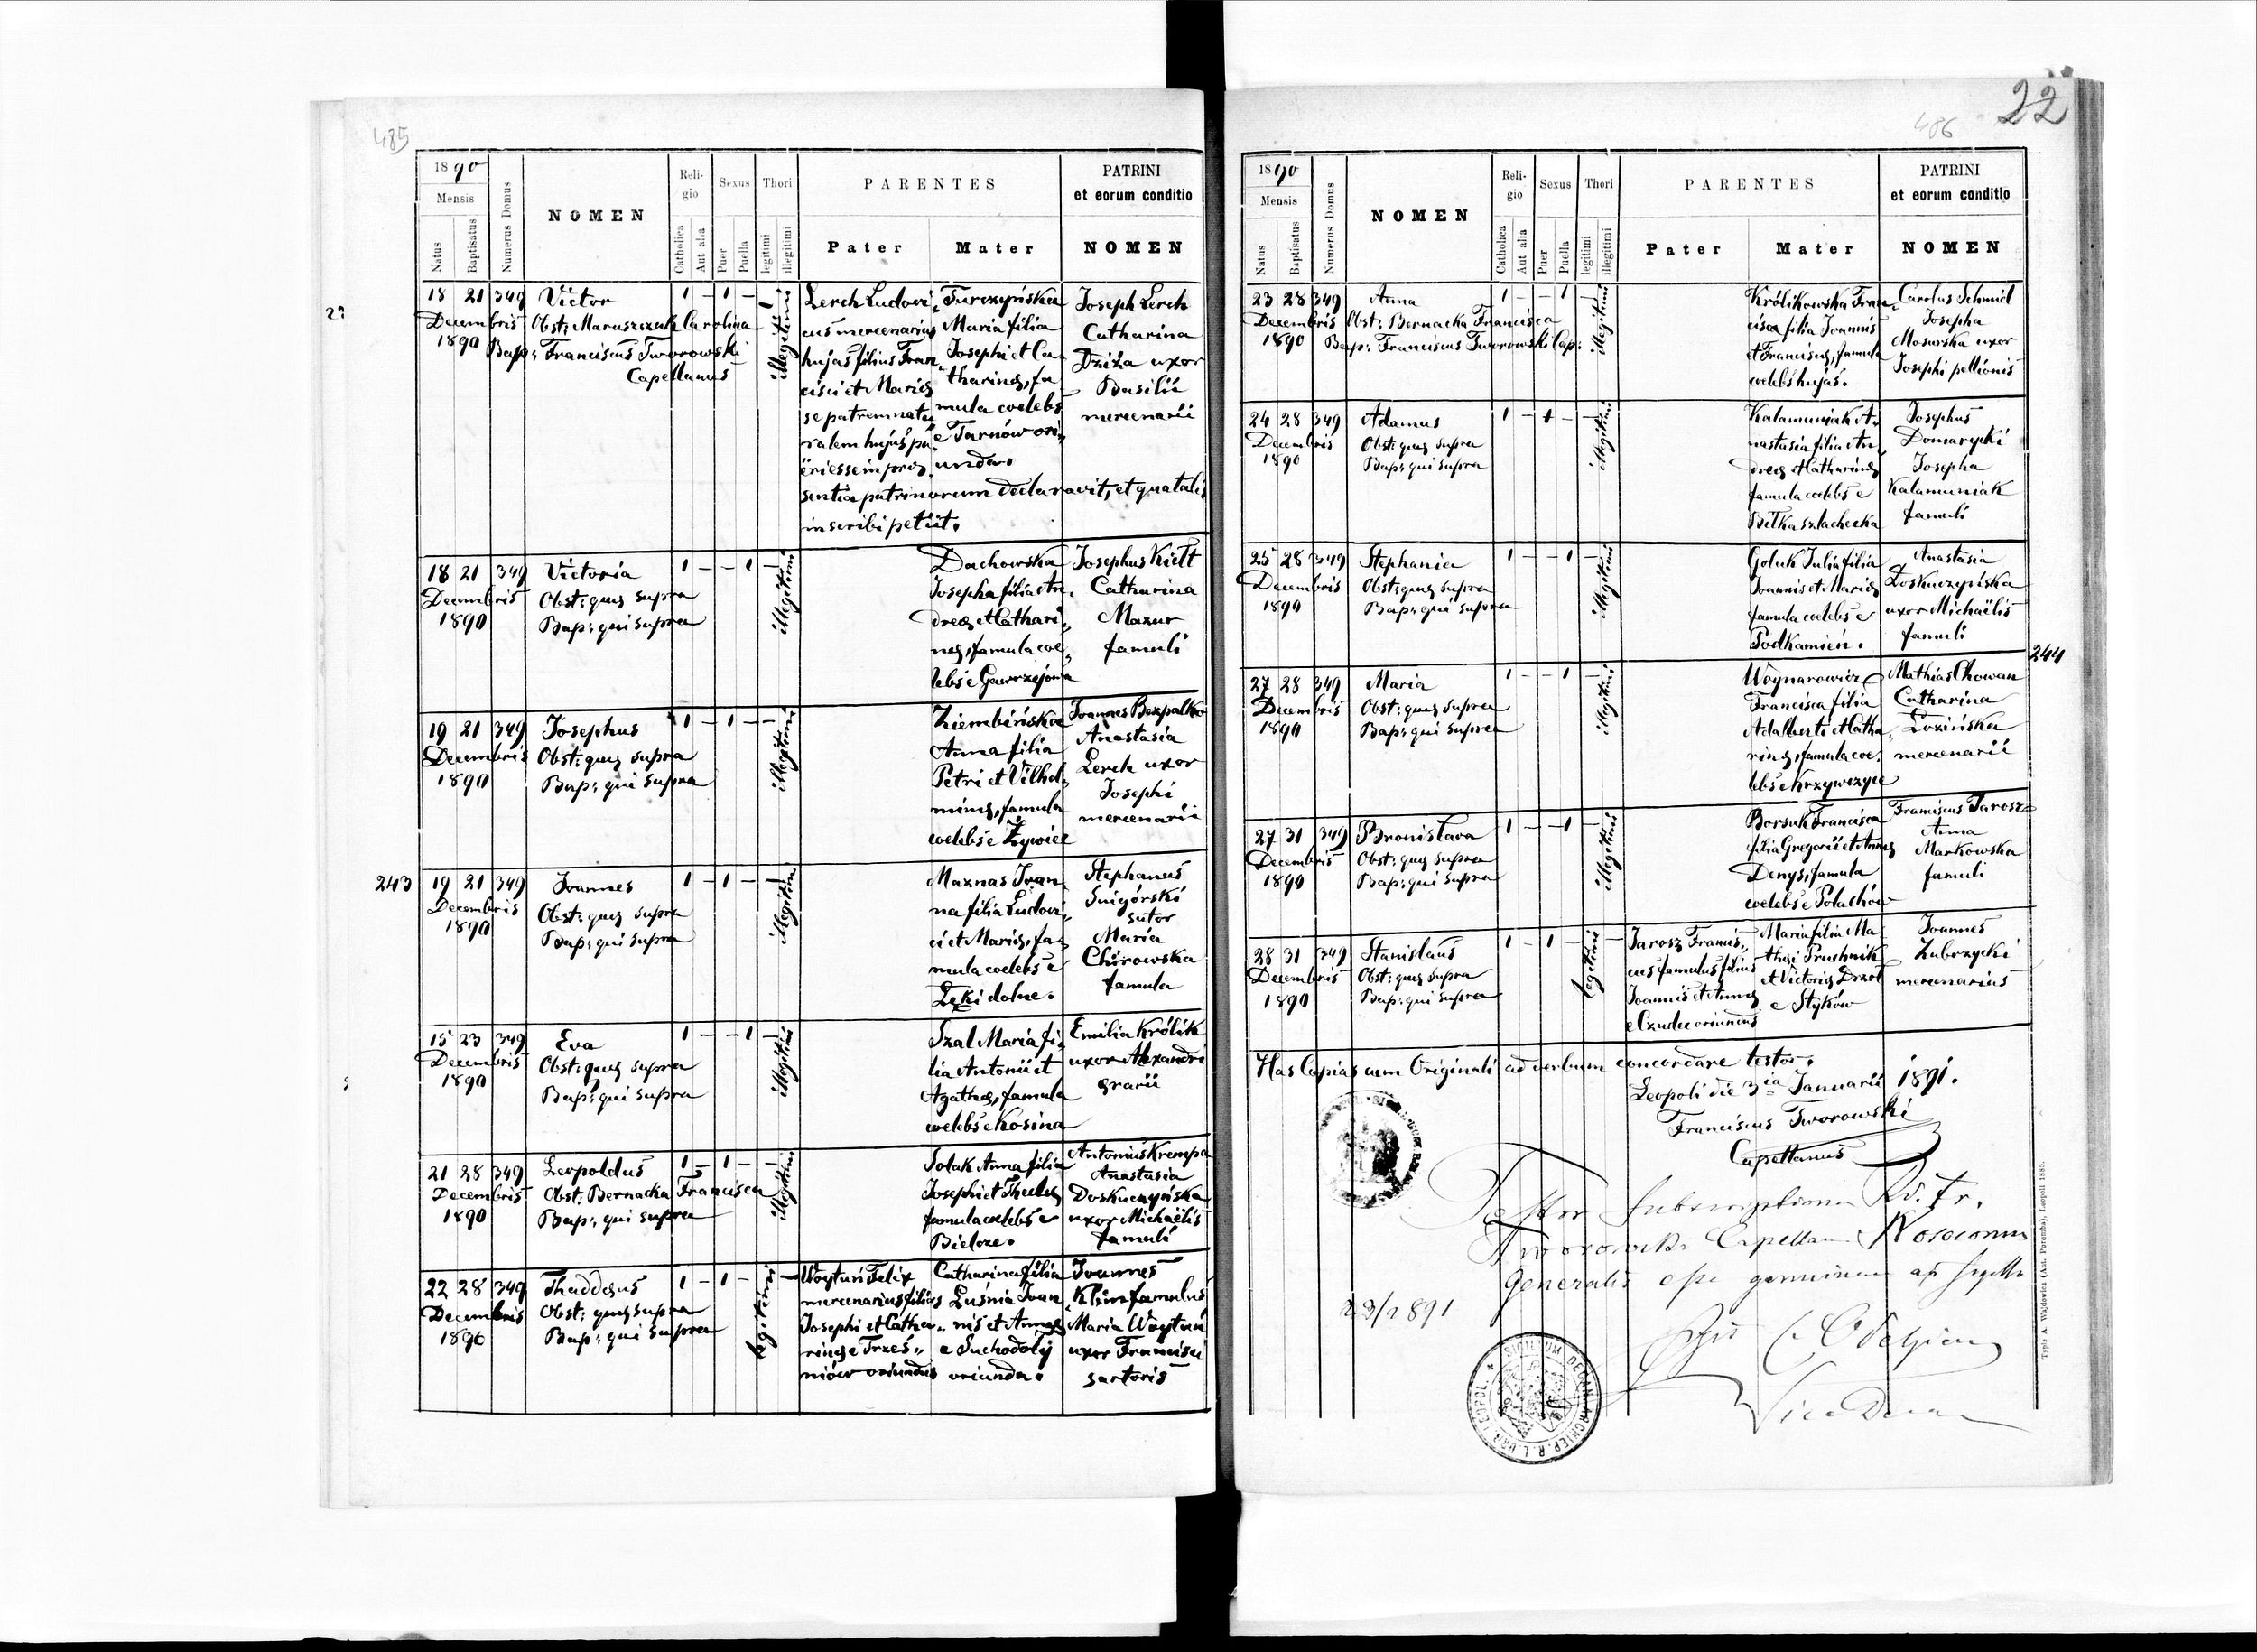 485
1890
Mensis
Natus
Baptisatus
Numerus Domus
NOMEN
Reli-
gio
Catholica
Aut alia
Sexus
Puer
Puella
Thori
legitimi
illegitimi
PARENTES
Pater
Mater
PATRINI
et eorum conditio
NOMEN
18 21 349
Decembris
1890
Victor
Obst: Maruszczak Carolina
Bap: Franciscus Tworowski
Capellanus
1 – 1 –
illegitimi
Lerch Ludovi„
cus mercenarius
hujas filius Fran„
cisci et Mariæ
se patrem natu„
ralem hujus pu„
eri esse in præ„
sentia patrinorum declaravit, et qua talis
inscribi petiit.
Turczyńska
Maria filia
Josephi et Ca„
tharinæ, fa„
mula coelebs
e Tarnów ori„
unda.
Joseph Lerch
Catharina
Dziża uxor
Basilii
mercenarii
18 21 349
Decembris
1890
Victoria
Obst: quæ supra
Bap: qui supra
1 – – 1 –
illegitimi
Dachowska
Josepha filia An„
dreæ et Cathari„
næ, famula coe„
lebs e Gawrzyłowa
Josephus Kiełt
Catharina
Mazur
famuli
19 21 349
Decembris
1890
Josephus
Obst: quæ supra
Bap: qui supra
1 – 1 – –
illegitimi
Ziembińska
Anna filia
Petri et Vilhel„
minæ, famula
coelebs e Żywiec
Joannes Bezpalko
Anastasia
Lerch uxor
Josephi
mercenarii
243
19 21 349
Decembris
1890
Joannes
Obst: quæ supra
Bap: qui supra
1 – 1 – –
illegitimi
Maznas Joan„
na filia Ludovi„
ci et Mariæ, fa„
mula coelebs e
Łęki dolne.
Stephanus
Snigórski
sutor
Maria
Chirowska
famula
15 23 349
Decembris
1890
Eva
Obst: quæ supra
Bap: qui supra
1 – – 1 –
illegitimi
Szal Maria fi„
lia Antonii et
Agathæ, famula
coelebs e Kosina
Emilia Królik
uxor Alexandri
grarii
21 28 349
Decembris
1890
Leopoldus
Obst: Bernacka Francisca
Bap: qui supra
1 – 1 – –
illegitimi
Polak Anna filia
Josephi et Theclæ
famula coelebs e
Bielcze.
Antonius Krempa
Anastasia
Doskuczyńska
uxor Michaëlis
famuli
22 28 349
Decembris
1890
Thaddæus
Obst: quæ supra
Bap: qui supra
1 – 1 –
legitimi
Woytuń Felix
mercenarius filius
Josephi et Catha„
rinæ e Trześ„
niów oriundus
Catharina filia
Luśnia Joan„
nis et Annæ
e Suchodoły
oriunda.
Joannes
Klim famulus
Maria Woytuń
uxor Francisci
sartoris
486
22
1890
Mensis
Natus
Baptisatus
Numerus Domus
NOMEN
Reli-
gio
Catholica
Aut alia
Sexus
Puer
Puella
Thori
legitimi
illegitimi
PARENTES
Pater
Mater
PATRINI
et eorum conditio
NOMEN
23 28 349
Decembris
1890
Anna
Obst: Bernacka Francisca
Bap: Franciscus Tworowski Cap:
1 – – 1 –
illegitimi
Królikowska Fran„
cisca filia Joannis
et Franciscæ, famula
coelebs hujas.
Carolus Schmid
Josepha
Mosurska uxor
Josephi pellionis
24 28 349
Decembris
1890
Adamus
Obst: quæ supra
Bap: qui supra
1 – 1 –
illegitimi
Kalamuniak A„
nastasia filia An„
dreæ et Catharinæ
famula coelebs e
Biłka szlachecka
Josephus
Domarycki
Josepha
Kalamuniak
famuli
25 28 349
Decembris
1890
Stephania
Obst: quæ supra
Bap: qui supra
1 – – 1 –
illegitimi
Goluk Julia filia
Joannis et Mariæ
famula coelebs e
Podkamień.
Anastasia
Doskuczyńska
uxor Michaëlis
famuli
244
27 28 349
Decembris
1890
Maria
Obst: quæ supra
Bap: qui supra
1 – – 1 –
illegitimi
Woynarowicz
Francisca filia
Adalberti et Catha„
rinæ, famula coe„
lebs e Krzywczyce
Mathias Chowan
Catharina
Łozińska
mercenarii
27 31 349
Decembris
1890
Bronislava
Obst: quæ supra
Bap: qui supra
1 – – 1 –
illegitimi
Borsuk Francisca
filia Gregorii et Annæ
Denys, famula
coelebs e Poluchów
Franciscus Jarosz
Anna
Markowska
famuli
28 31 349
Decembris
1890
Stanislaus
Obst: quæ supra
Bap: qui supra
1 – 1 –
legitimi
Jarosz Francis„
cus famulus filius
Joannis et Annæ
e Czudec oriundus
Maria filia Ma„
thæi Pruchnik
et Victoriæ Drzał
e Styków
Joannes
Zubrzycki
mercenarius
Has Copias cum Originali ad verbum concordare testor.
Leopoli die 3ia Januarii 1891.
Franciscus Tworowski
Capellanus
Testor subscriptionem Rdi. Fr.
Tworowski Capellani Nosocomii
Generalis esse genuinam
23/1 891
Vice Decan
SIGILLUM DECAN. ARCHIEP. R. L. URB. LEOPOL.
Typis A. Wajdowicz (Ant. Poremba), Leopoli 1885.